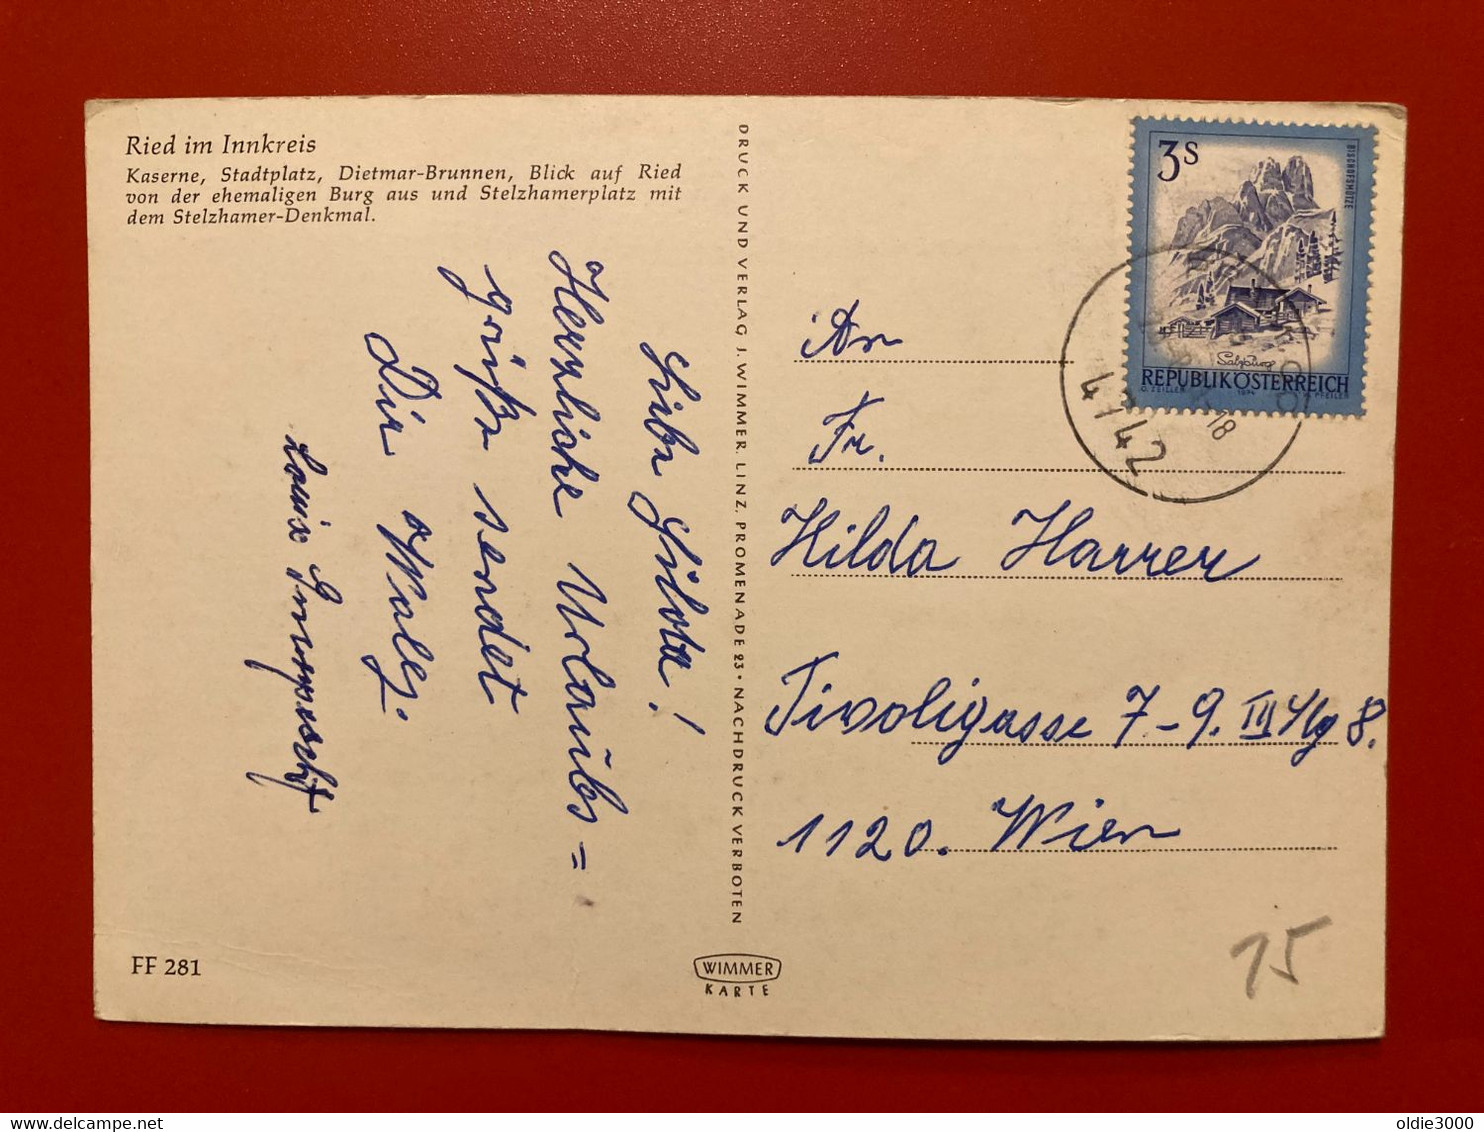 Ried im Innkreis
Kaserne, Stadtplatz, Dietmar-Brunnen, Blick auf Ried
von der ehemaligen Burg aus und Stelzhamerplatz mit
dem Stelzhamer-Denkmal.
Liebe Hilda!
Herzliche Urlaubs=
grüße sendet
Dir
Louise
FF 281
DRUCK UND VERLAG J. WIMMER, LINZ, PROMENADE 23 · NACHDRUCK VERBOTEN
WIMMER
KARTE
3S
BISCHOFSMÜTZE
Salzburg
REPUBLIK ÖSTERREICH
O. ZEILER 1974 W. PFEILER
4742
18
An
Fr.
Hilda Harrer
Tivoligasse 7-9. III 8.
1120. Wien
15
delcampe.net
oldie3000